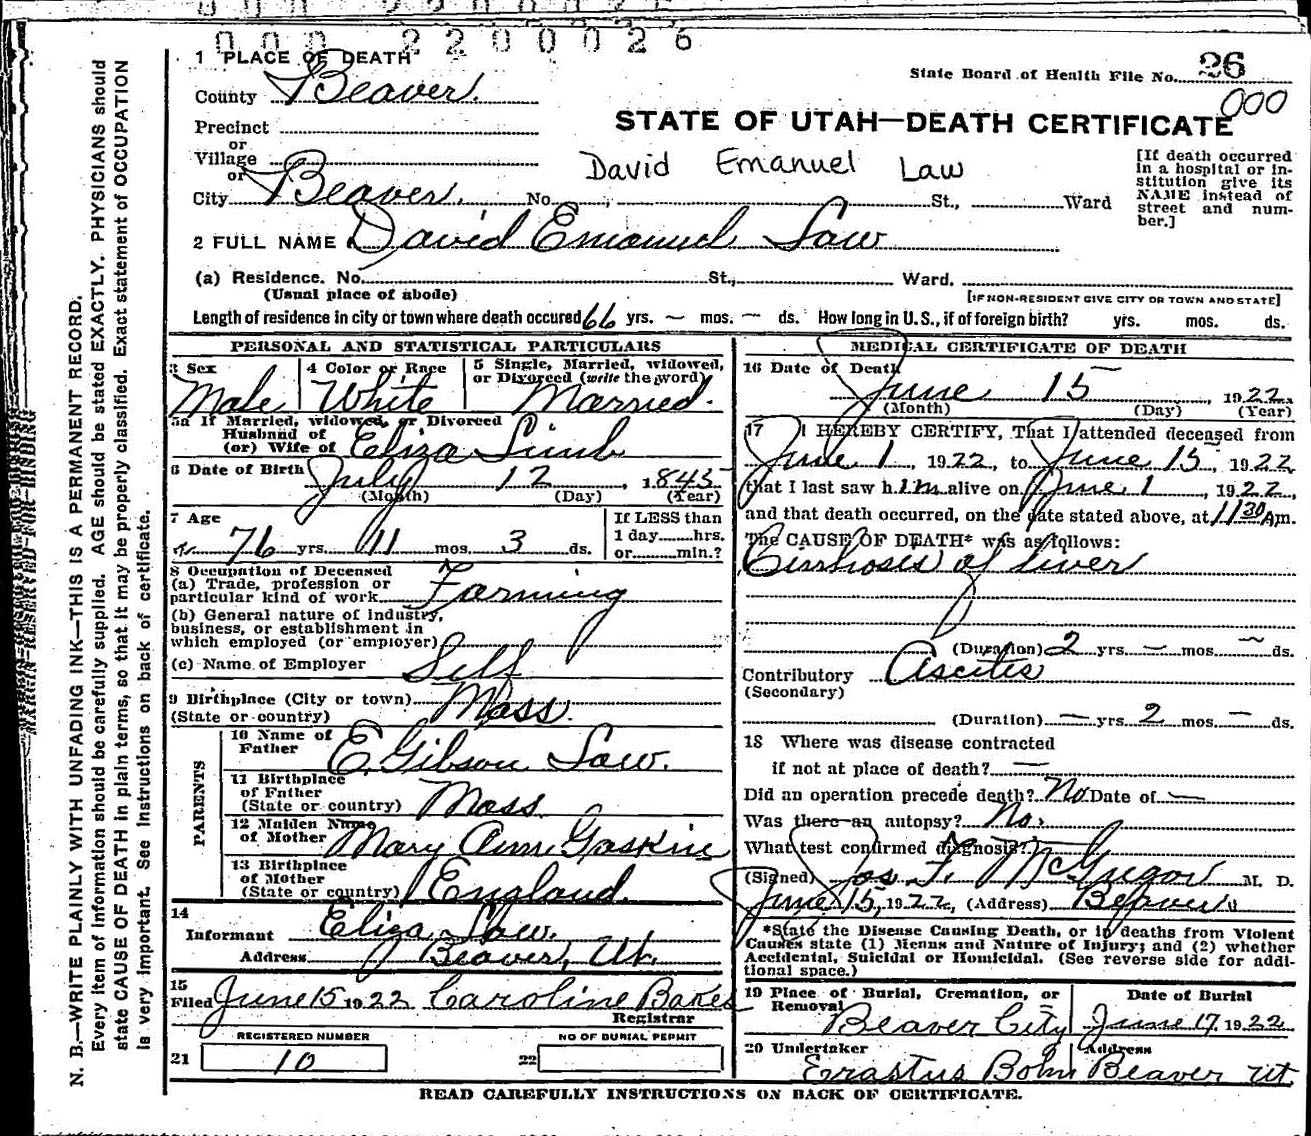 000 2200026
1 PLACE OF DEATH
State Board of Health File No. 26
000
County Beaver.
STATE OF UTAH—DEATH CERTIFICATE
Precinct
or
Village
David Emanuel Law
[If death occurred in a hospital or institution give its NAME instead of street and number.]
or
City Beaver. No. St., Ward
2 FULL NAME David Emanuel Law
(a) Residence. No. St., Ward.
(Usual place of abode) [IF NON-RESIDENT GIVE CITY OR TOWN AND STATE]
Length of residence in city or town where death occured 66 yrs. — mos. — ds. How long in U.S., if of foreign birth? yrs. mos. ds.
PERSONAL AND STATISTICAL PARTICULARS
3 Sex
Male
4 Color or Race
White
5 Single, Married, widowed, or Divorced (write the word)
Married.
5a If Married, widowed, or Divorced
Husband of
(or) Wife of Eliza
6 Date of Birth July 12, 1845
(Month) (Day) (Year)
7 Age
76 yrs. 11 mos. 3 ds.
If LESS than
1 day hrs.
or min.?
8 Occupation of Deceased
(a) Trade, profession or
particular kind of work Farming
(b) General nature of industry,
business, or establishment in
which employed (or employer)
(c) Name of Employer Self
9 Birthplace (City or town) Mass.
(State or country)
PARENTS
10 Name of
Father E. Gibson Law.
11 Birthplace
of Father
(State or country) Mass.
12 Maiden Name
of Mother Mary Ann Gaskin
13 Birthplace
of Mother
(State or country) England.
14
Informant Eliza Law.
Address Beaver, Ut.
15
Filed June 15 1922 Caroline Bakes
Registrar
REGISTERED NUMBER
21 10
NO OF BURIAL PERMIT
22
MEDICAL CERTIFICATE OF DEATH
16 Date of Death
June 15, 1922.
(Month) (Day) (Year)
17 I HEREBY CERTIFY, That I attended deceased from
June 1, 1922, to June 15, 1922
that I last saw him alive on June 1, 1922,
and that death occurred, on the date stated above, at 11 30 A.m.
The CAUSE OF DEATH* was as follows:
Cirrhoses of liver
(Duration) 2 yrs. — mos. — ds.
Contributory Ascites
(Secondary)
(Duration) — yrs. 2 mos. — ds.
18 Where was disease contracted
if not at place of death? —
Did an operation precede death? No Date of —
Was there an autopsy? No.
What test confirmed diagnosis?
(Signed) Jos F. McGregor M. D.
June 15, 1922, (Address) Beaver
*State the Disease Causing Death, or in deaths from Violent
Causes state (1) Means and Nature of Injury; and (2) whether
Accidental, Suicidal or Homicidal. (See reverse side for additional space.)
19 Place of Burial, Cremation, or
Removal
Beaver City
Date of Burial
June 17 1922
20 Undertaker
Erastus Bohn
Address
Beaver Ut.
READ CAREFULLY INSTRUCTIONS ON BACK OF CERTIFICATE.
MARGIN RESERVED FOR BINDING
N. B.—WRITE PLAINLY WITH UNFADING INK—THIS IS A PERMANENT RECORD.
Every item of information should be carefully supplied. AGE should be stated EXACTLY. PHYSICIANS should
state CAUSE OF DEATH in plain terms, so that it may be properly classified. Exact statement of OCCUPATION
is very important. See Instructions on back of certificate.